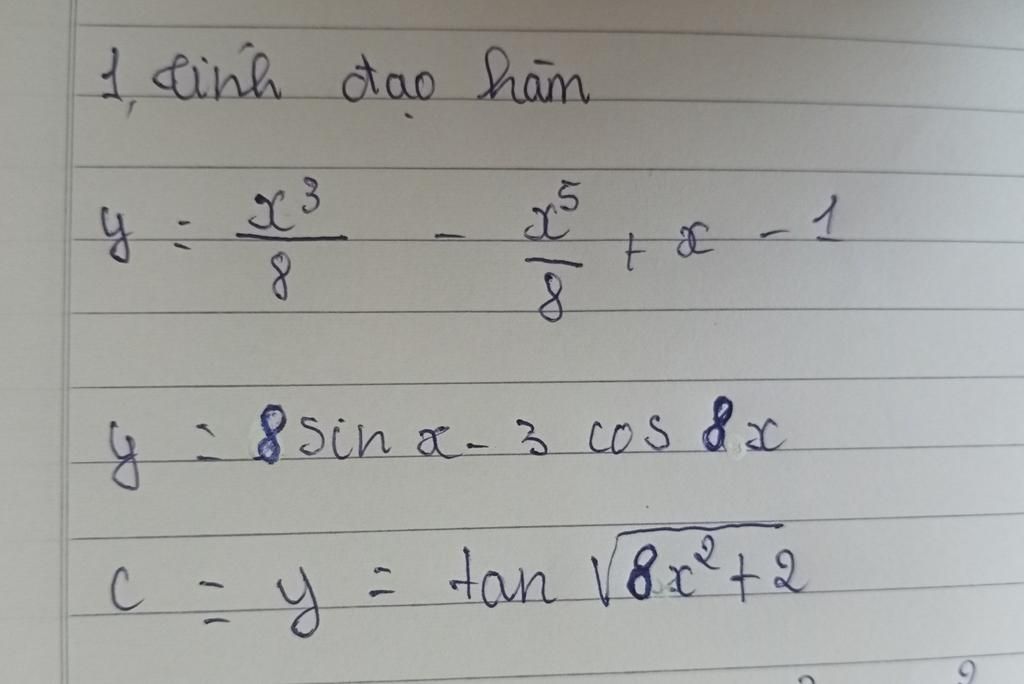 1, tính đạo hàm
y = x³/8 - x⁵/8 + x - 1
y = 8 sin x - 3 cos 8x
c = y = tan √(8x² + 2)